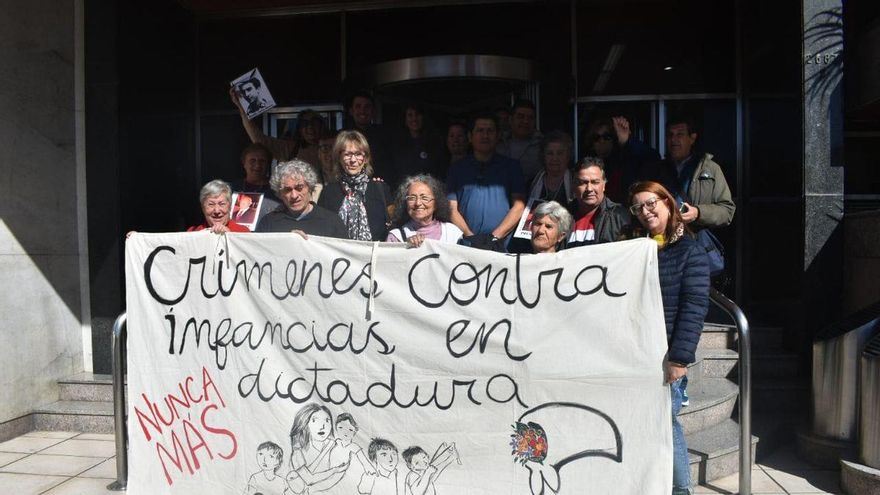 2667
Crímenes contra
infancias en
dictadura
NUNCA
MAS